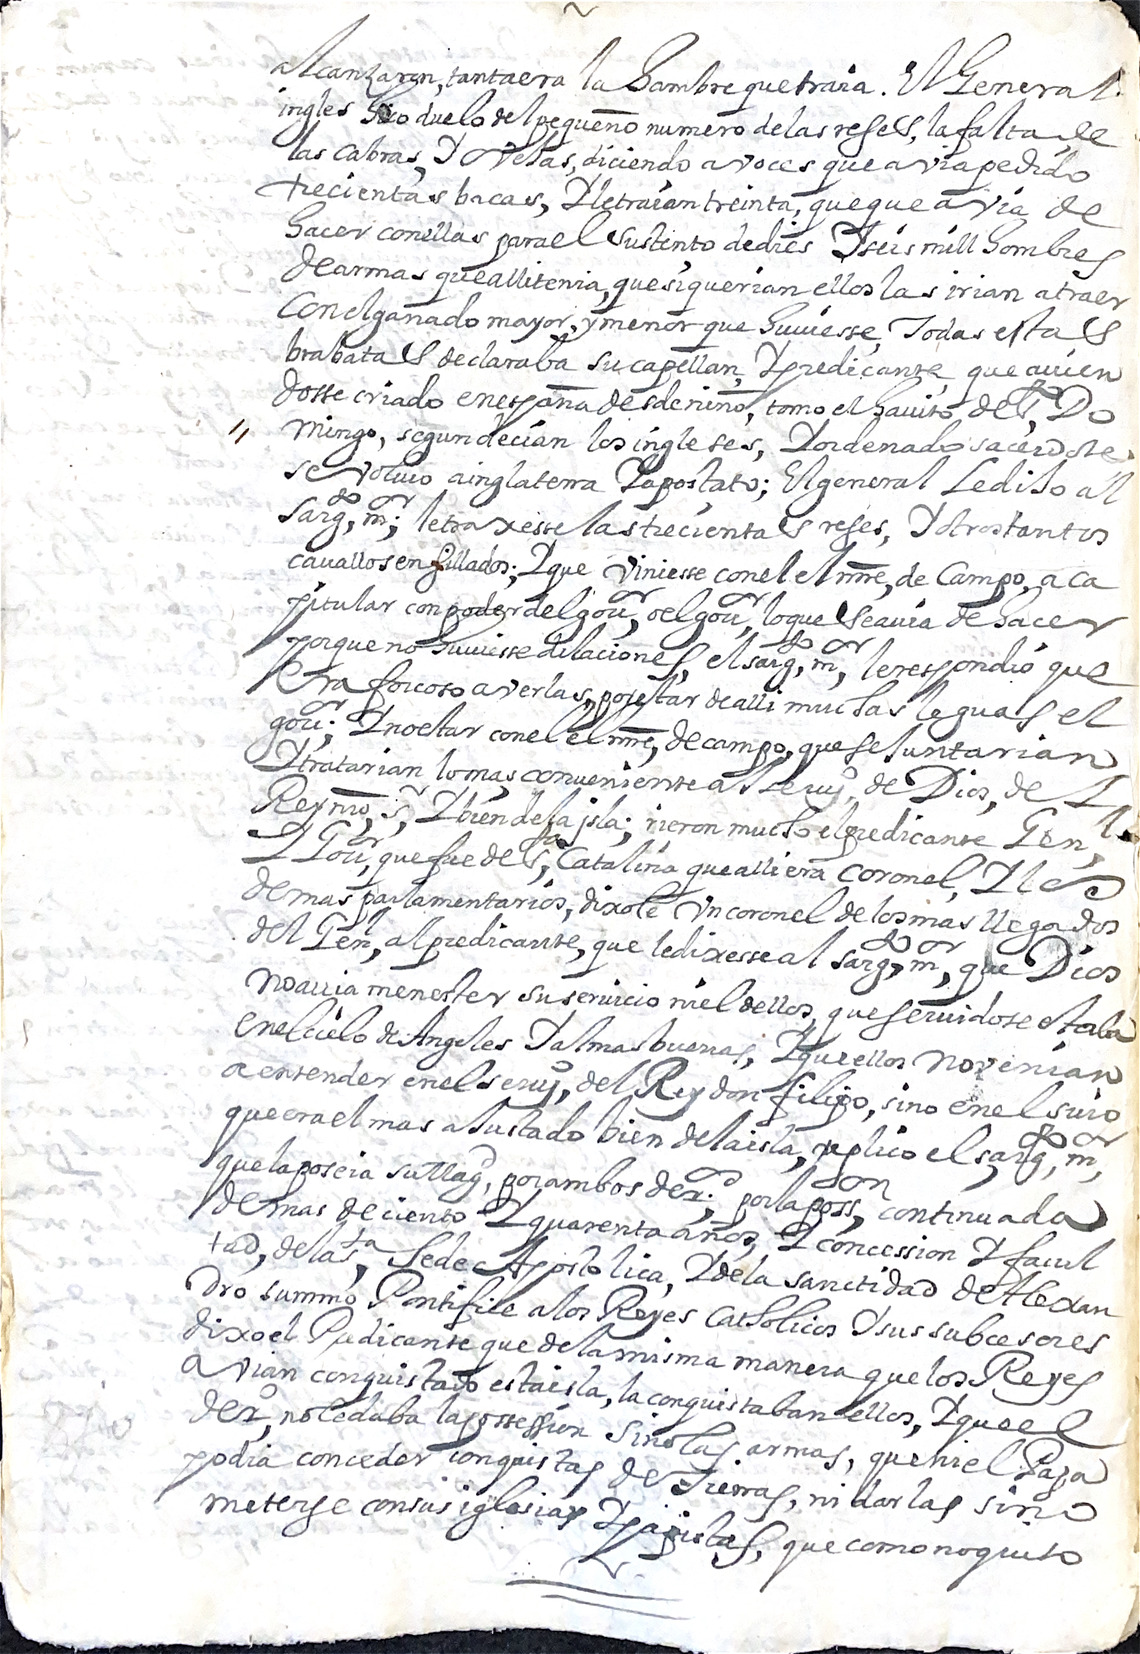 alcanzaron, tanta era la hambre que traia. El General
ingles hizo duelo del pequeño numero de las reses, la falta de
las cabras, Y ovejas, diciendo a voces que avia pedido
trecientas bacas, Y le traian treinta, que que avia de
hacer con ellas para el sustento de dies Y seis mill hombres
de armas que alli tenia, que si querian ellos las irian a traer
con el ganado mayor, y menor que huviesse, Todas estas
brabatas declaraba su capellan, Y predicante, que avien
dosse criado en españa desde niño, tomo el havito de Sto, Do
mingo, segun decian los ingleses, Y ordenado sacerdote
se volvio a inglaterra Y apostato; El general Le dijo al
sargto, mor; le traxesse las trecientas reses, Y otros tantos
cavallos ensillados; Y que viniesse con el el mre, de Campo, a ca
pitular con poder del govr, o el govr, lo que se avia de hacer
porque no huviesse dilaciones, el sargto, mor, le respondio que
era forçoso averlas, por estar de alli muchas leguas el
govr; Y no estar con el el mre, de campo, que se juntarian
Y tratarian lo mas conveniente al servo, de Dios, de L
Rey nro, sr, Y bien de la jsla; rieron mucho el predicante Genl,
Y Govr, que fue de Sta, Catalina que alli era coronel, Y los
demas parlamentarios, dixole vn coronel de los mas llegados
del Genl, al predicante, que le dixesse al sargto, mor, que Dios
no avia menester su servicio ni el dellos, que servidose estaba
en el cielo de Angeles Y almas buenas, Y que ellos no venian
a entender en el servo, del Rey don filipo, sino en el suio
que era el mas ajustado bien de la isla, replico el sargto, mor,
que la poseia su Magd, por ambos dexos; por la posson, continuada
de mas de ciento Y quarenta años, Y concession Y facul
tad, de la sta, Sede Apostolica, Y de la sanctidad de Alexan
dro summo Pontifice a los Reyes Catholicos Y sus subcesores
dixo el Predicante que de la misma manera que los Reyes
avian conquistado esta isla, la conquistaban ellos, Y que el
dexo, no le daba la possession sino las armas, que ni el Papa
podia conceder conquistas de Tierras, ni darlas sino
meterse con sus iglesias Y papistas, que como no quito